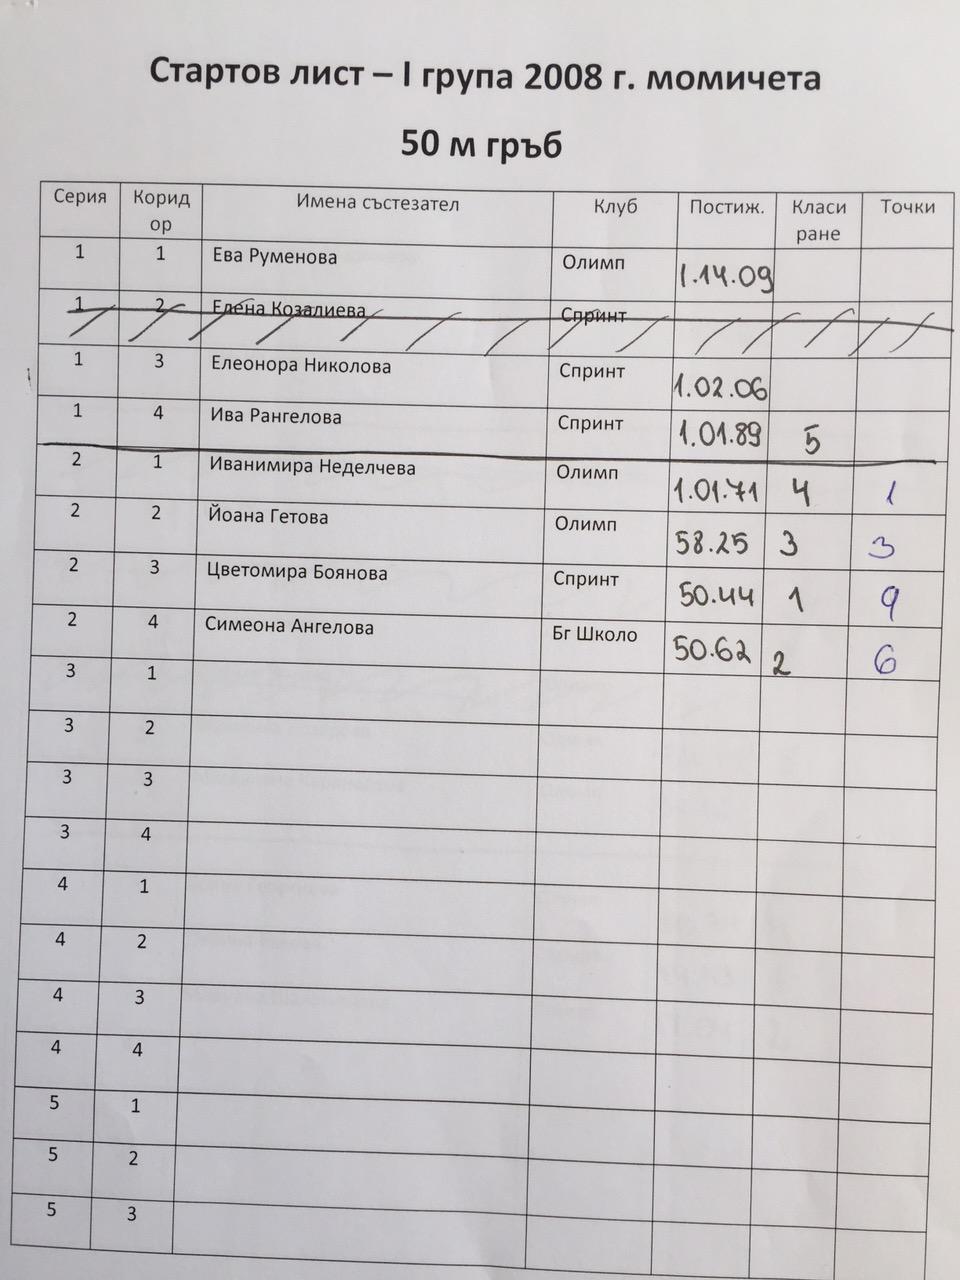 Стартов лист – I група 2008 г. момичета
50 м гръб
Серия Коридор Имена състезател Клуб Постиж. Класиране Точки
1 1 Ева Руменова Олимп 1.14.09
1 2 Елена Козалиева Спринт
1 3 Елеонора Николова Спринт 1.02.06
1 4 Ива Рангелова Спринт 1.01.89 5
2 1 Иванимира Неделчева Олимп 1.01.71 4 1
2 2 Йоана Гетова Олимп 58.25 3 3
2 3 Цветомира Боянова Спринт 50.44 1 9
2 4 Симеона Ангелова Бг Школо 50.62 2 6
3 1
3 2
3 3
3 4
4 1
4 2
4 3
4 4
5 1
5 2
5 3